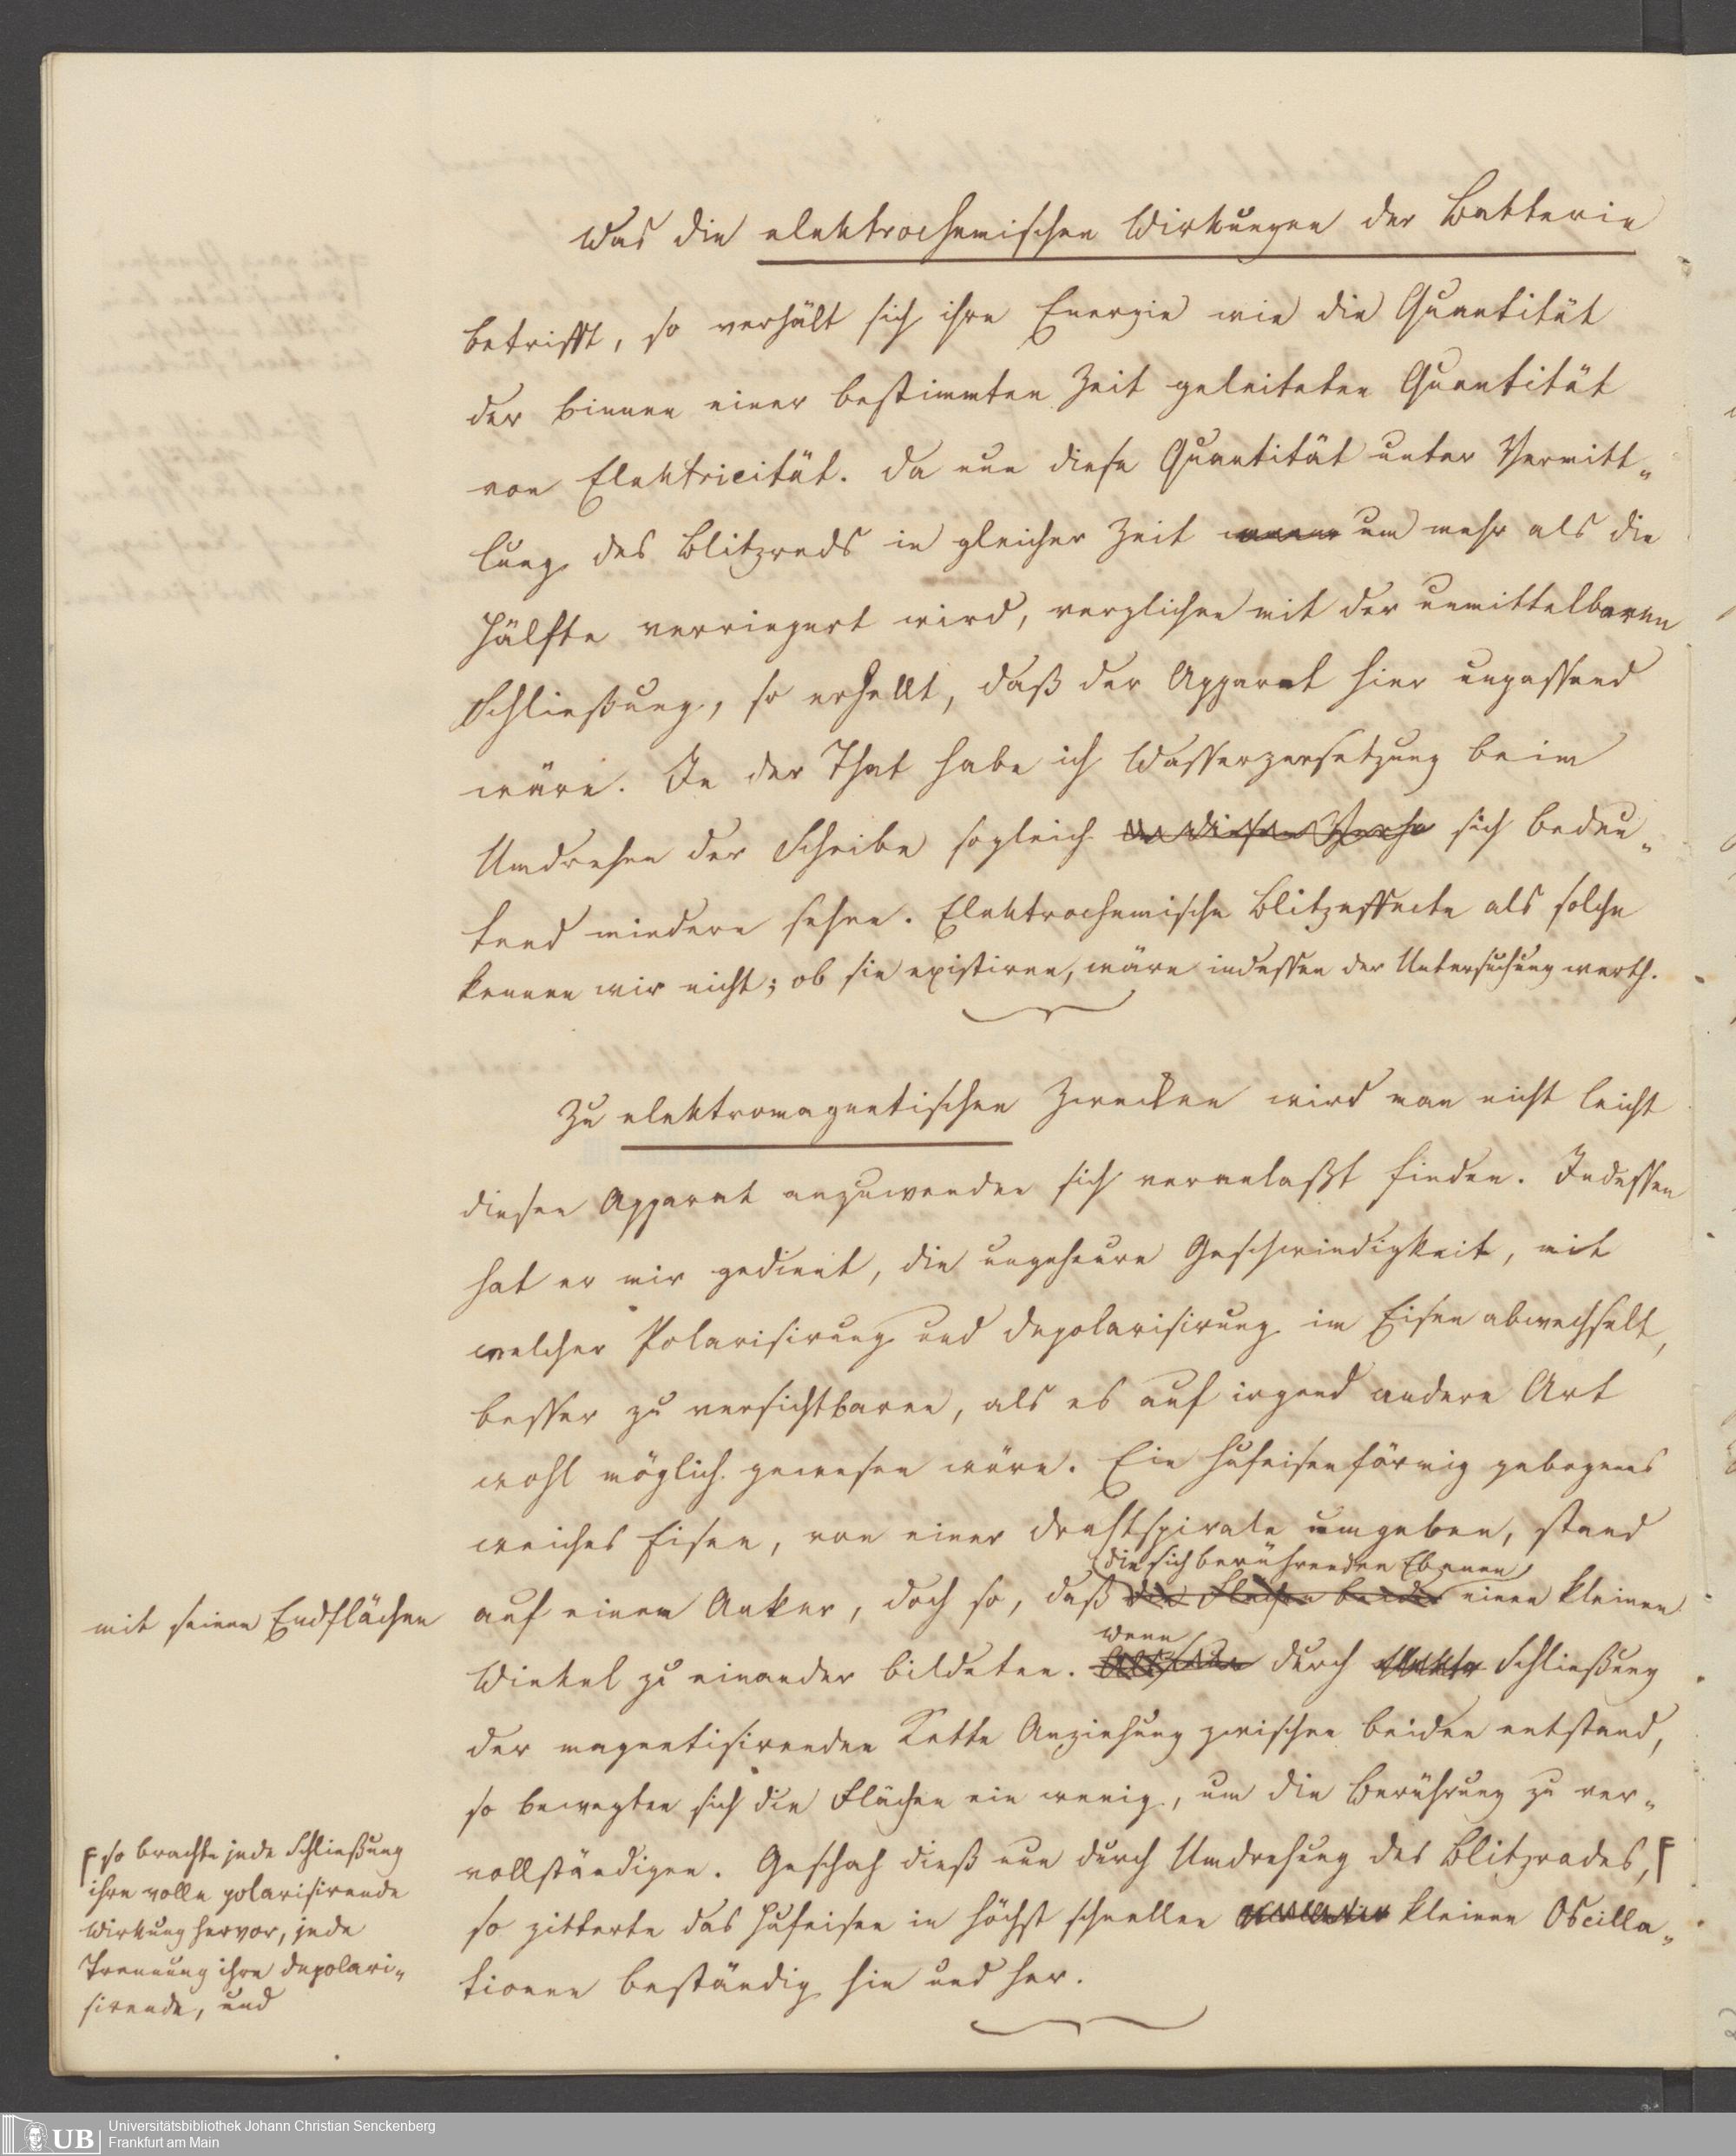 Was die elektrochemischen Wirkungen der Batterie
betrifft, so verhält sich ihre Energie wie die Quantität
der binnen einer bestimmten Zeit geleiteten Quantität
von Elektricität. Da nun diese Quantität unter Vermitt-
lung des Blitzrads in gleicher Zeit um mehr als die
Hälfte verringert wird, verglichen mit der unmittelbaren
Schließung, so erhellt, daß der Apparat hier unpassend
wäre. In der That habe ich Wasserzersetzung beim
Umdrehen der Scheibe sogleich in diesem sich bedeu-
tend mindern sehen. Elektrochemische Blitzeffecte als solche
kennen wir nicht; ob sie existiren, wäre indessen der Untersuchung werth.
Zu elektromagnetischen Zwecken wird man nicht leicht
diesen Apparat anzuwenden sich veranlaßt finden. Indessen
hat er mir gedient, die ungeheure Geschwindigkeit, mit
welcher Polarisirung und Depolarisirung im Eisen abwechselt,
besser zu versichtbaren, als es auf irgend andere Art
wohl möglich gewesen wäre. Ein hufeisenförmig gebogenes
weiches Eisen, von einer Drahtspirale umgeben, stand
die sich berührenden Ebenen
mit seinen Endflächen
auf einem Anker, doch so, daß die Flächen beider einen kleinen
wenn
Winkel zu einander bildeten. durch Schließung
der magnetisirenden Kette Anziehung zwischen beiden entstand,
so bewegten sich die Flächen ein wenig, um die Berührung zu ver-
vollständigen. Geschah dieß nun durch Umdrehung des Blitzrades,
so zitterte das Hufeisen in höchst schnellen kleinen Oscilla-
tionen beständig hin und her.
so brachte jede Schließung
ihre volle polarisirende
Wirkung hervor, jede
Trennung ihre depolari-
sirende, und
UB
Universitätsbibliothek Johann Christian Senckenberg
Frankfurt am Main